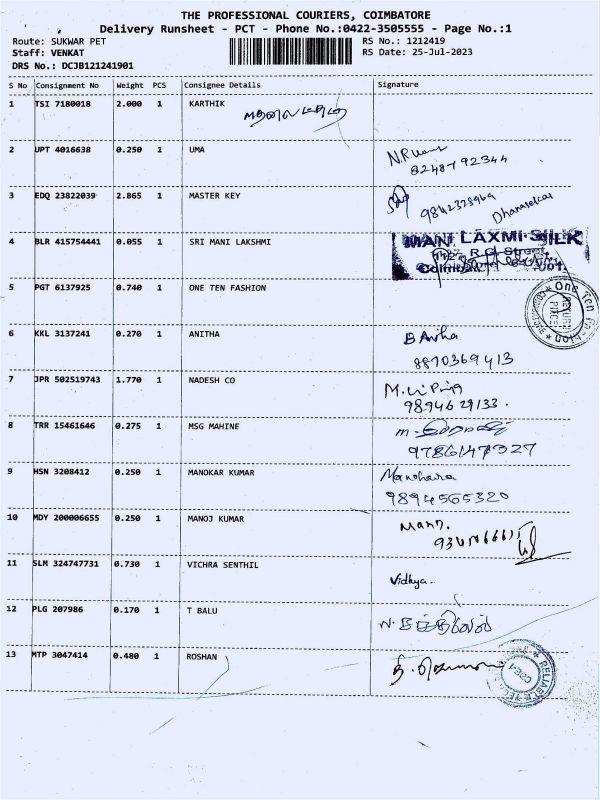 THE PROFESSIONAL COURIERS, COIMBATORE
Delivery Runsheet - PCT - Phone No.:0422-3505555 - Page No.:1
Route: SUKWAR PET RS No.: 1212419
Staff: VENKAT RS Date: 25-Jul-2023
DRS No.: DCJB121241901
S No Consignment No Weight PCS Consignee Details Signature
1 TSI 7180018 2.000 1 KARTHIK
2 UPT 4016638 0.250 1 UMA
82487 92344
3 EDQ 23822039 2.865 1 MASTER KEY
Dhanasekar
4 BLR 415754441 0.055 1 SRI MANI LAKSHMI
MANI LAXMI SILK
5 PGT 6137925 0.740 1 ONE TEN FASHION
One Ten
6 KKL 3137241 0.270 1 ANITHA
8870369413
7 JPR 502519743 1.770 1 NADESH CO
9894629133.
8 TRR 15461646 0.275 1 MSG MAHINE
9786147327
9 HSN 3208412 0.250 1 MANOKAR KUMAR
9894565320
10 MDY 200006655 0.250 1 MANOJ KUMAR
11 SLM 324747731 0.730 1 VICHRA SENTHIL
Vidhya..
12 PLG 207986 0.170 1 T BALU
13 MTP 3047414 0.480 1 ROSHAN
CBE-1